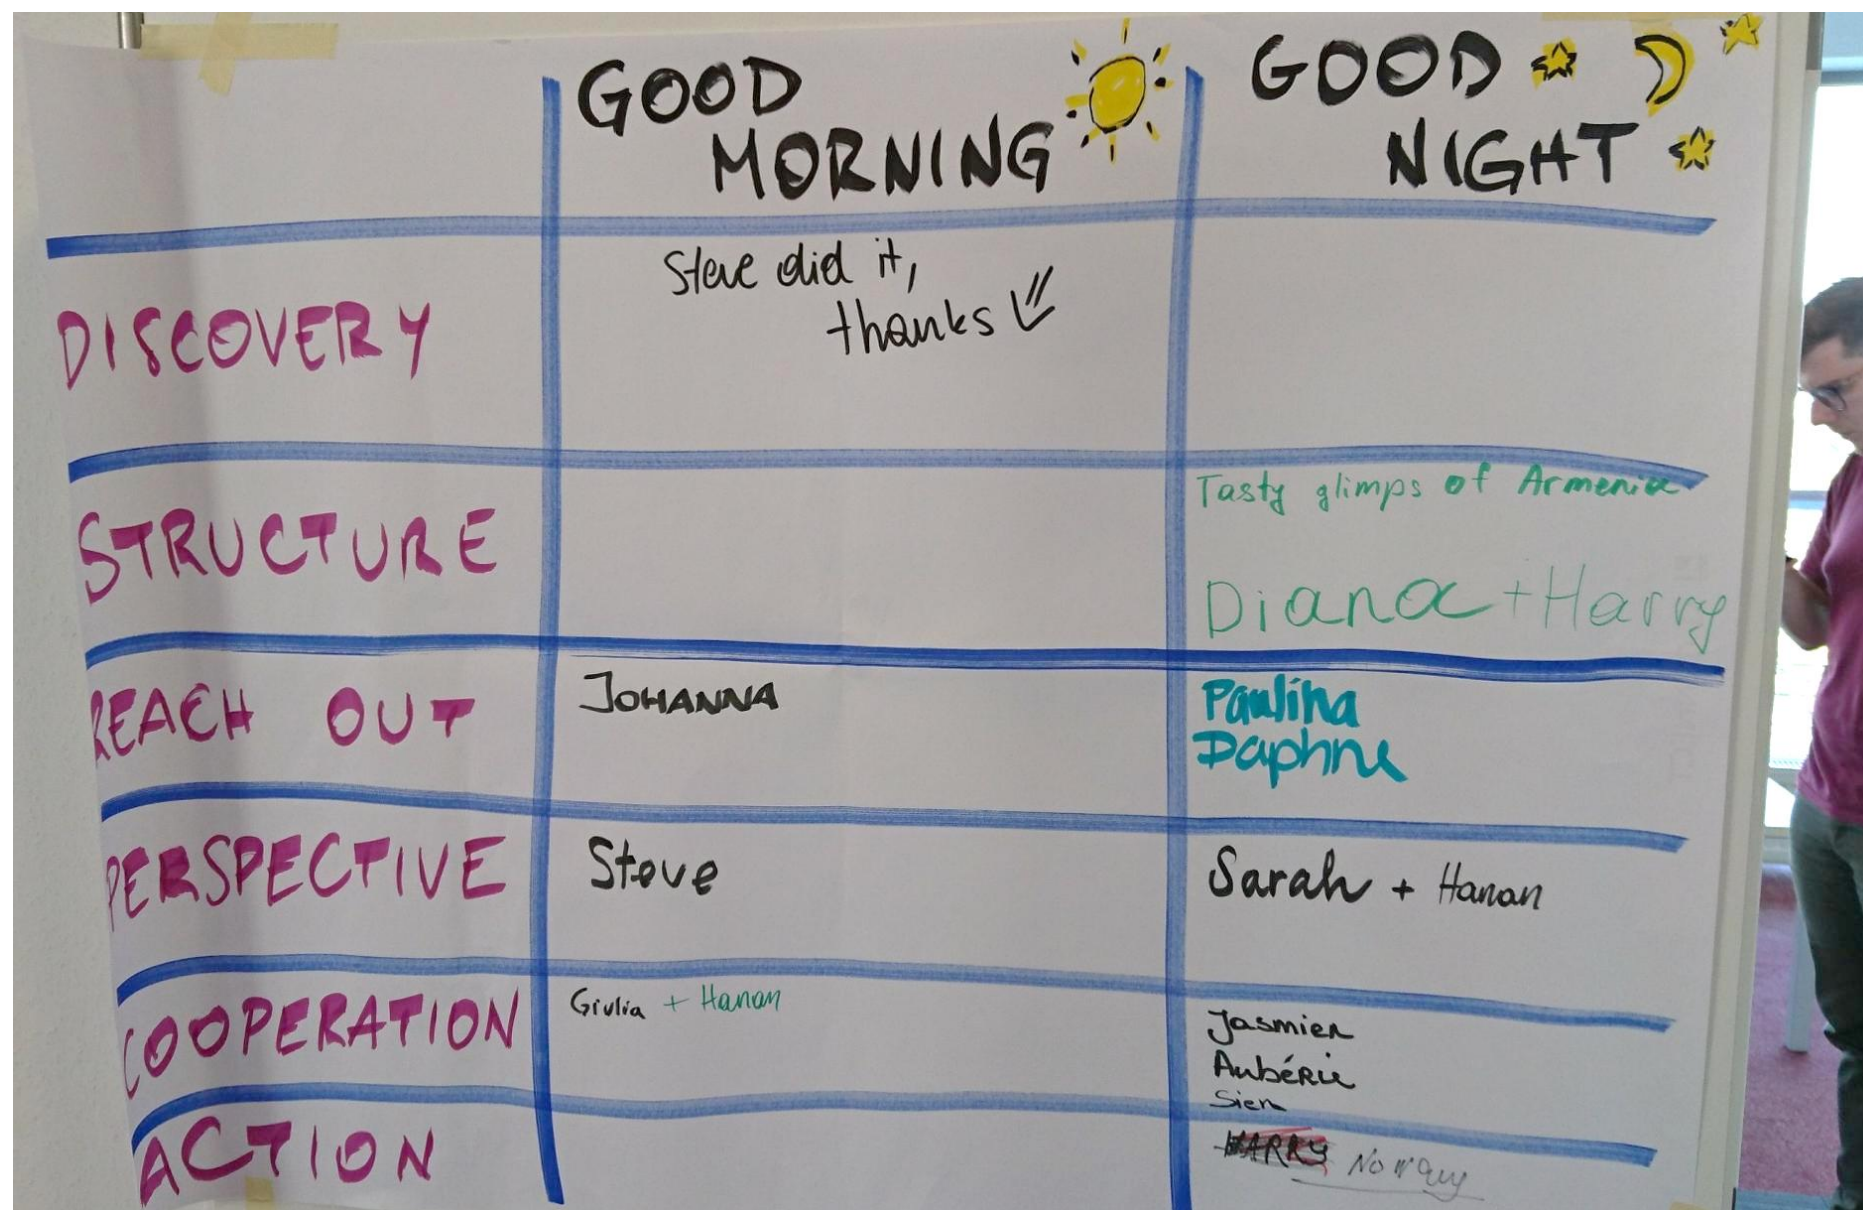 GOOD
MORNING
GOOD
NIGHT
DISCOVERY
Steve did it,
thanks
STRUCTURE
Tasty glimps of Armenia
Diana + Harry
REACH OUT
JOHANNA
Paulina
Daphne
PERSPECTIVE
Steve
Sarah + Hanan
COOPERATION
Giulia + Hanan
Jasmien
Aubérie
Sien
ACTION
HARRY Norway